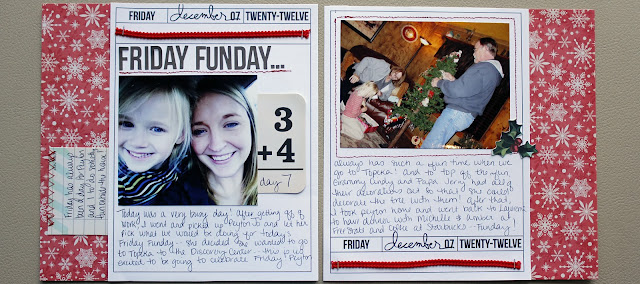 FRIDAY december 07 TWENTY-TWELVE
FRIDAY FUNDAY...
3
+4
day 7
Friday has always
been a day for Payton
and I to do something
Today was a very busy day! After getting off of
work I went and picked up Payton & and let her
pick what we would be doing for today's
Friday Funday -- she decided she wanted to go
to Topeka to the Discovery Center -- this is us
excited to be going to celebrate Friday! Payton
always has such a fun time when we
go to Topeka! and to top off the fun
Grammy Cindy and Papa Jerry had all of
their decorations out so that she could
decorate the tree with them! after that,
I took payton home and went back to Lawrence
to have dinner with Michelle & amber at
Free State and coffee at Starbucks -- Funday!
FRIDAY december 07 TWENTY-TWELVE